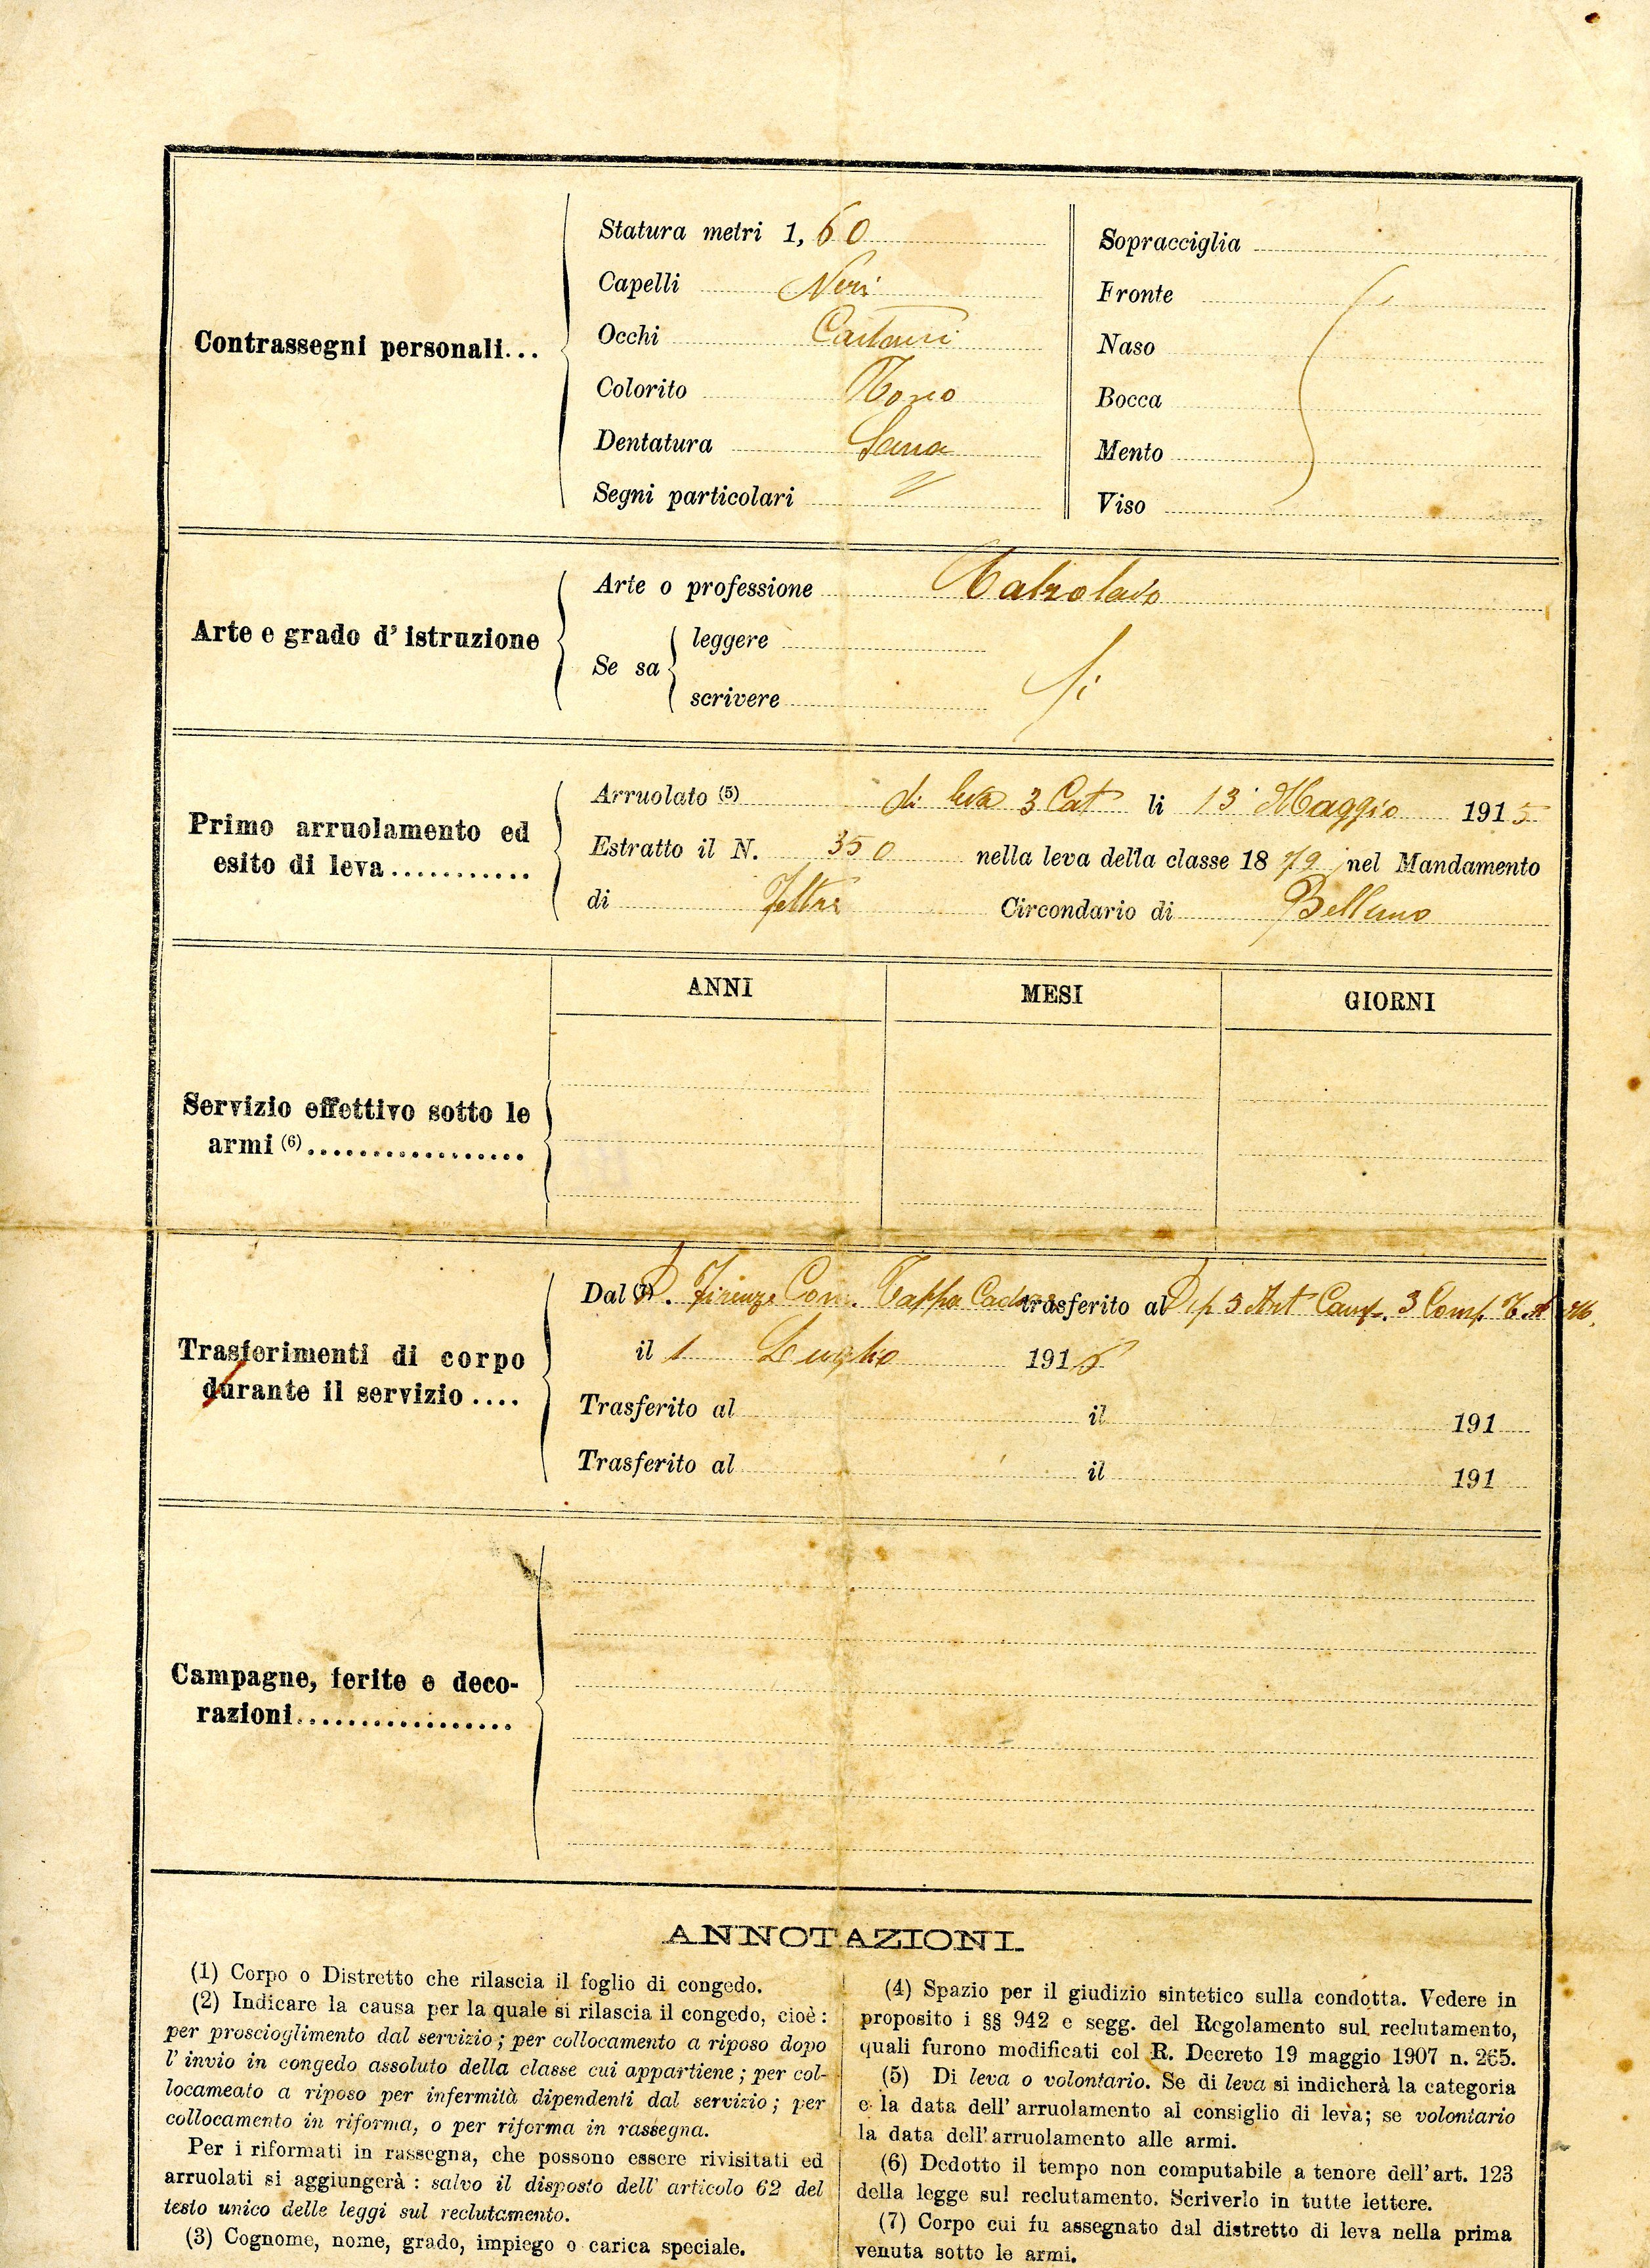 Contrassegni personali...
Statura metri 1, 60
Capelli Neri
Occhi Castani
Colorito Roseo
Dentatura Sana
Segni particolari
Sopracciglia
Fronte
Naso
Bocca
Mento
Viso
Arte e grado d' istruzione
Arte o professione Calzolaio
Se sa
leggere
scrivere
Si
Primo arruolamento ed
esito di leva...........
Arruolato (5) di leva 3 Cat li 13 Maggio 1915
Estratto il N. 350 nella leva della classe 18 79 nel Mandamento
di Feltre Circondario di Belluno
Servizio effettivo sotto le
armi (6).................
ANNI MESI GIORNI
Trasferimenti di corpo
durante il servizio....
Dal (7) D. Firenze Com. Tappa trasferito al 3 Art Camp. 3 Comp.
il 1 Luglio 1916
Trasferito al il 191
Trasferito al il 191
Campagne, ferite e deco-
razioni.................
ANNOTAZIONI.
(1) Corpo o Distretto che rilascia il foglio di congedo.
(2) Indicare la causa per la quale si rilascia il congedo, cioè:
per proscioglimento dal servizio; per collocamento a riposo dopo
l' invio in congedo assoluto della classe cui appartiene; per col-
locameato a riposo per infermità dipendenti dal servizio; per
collocamento in riforma, o per riforma in rassegna.
Per i riformati in rassegna, che possono essere rivisitati ed
arruolati si aggiungerà: salvo il disposto dell' articolo 62 del
testo unico delle leggi sul reclutamento.
(3) Cognome, nome, grado, impiego o carica speciale.
(4) Spazio per il giudizio sintetico sulla condotta. Vedere in
proposito i §§ 942 e segg. del Regolamento sul reclutamento,
quali furono modificati col R. Decreto 19 maggio 1907 n. 265.
(5) Di leva o volontario. Se di leva si indicherà la categoria
e la data dell' arruolamento al consiglio di leva; se volontario
la data dell'arruolamento alle armi.
(6) Dedotto il tempo non computabile a tenore dell'art. 123
della legge sul reclutamento. Scriverlo in tutte lettere.
(7) Corpo cui fu assegnato dal distretto di leva nella prima
venuta sotto le armi.